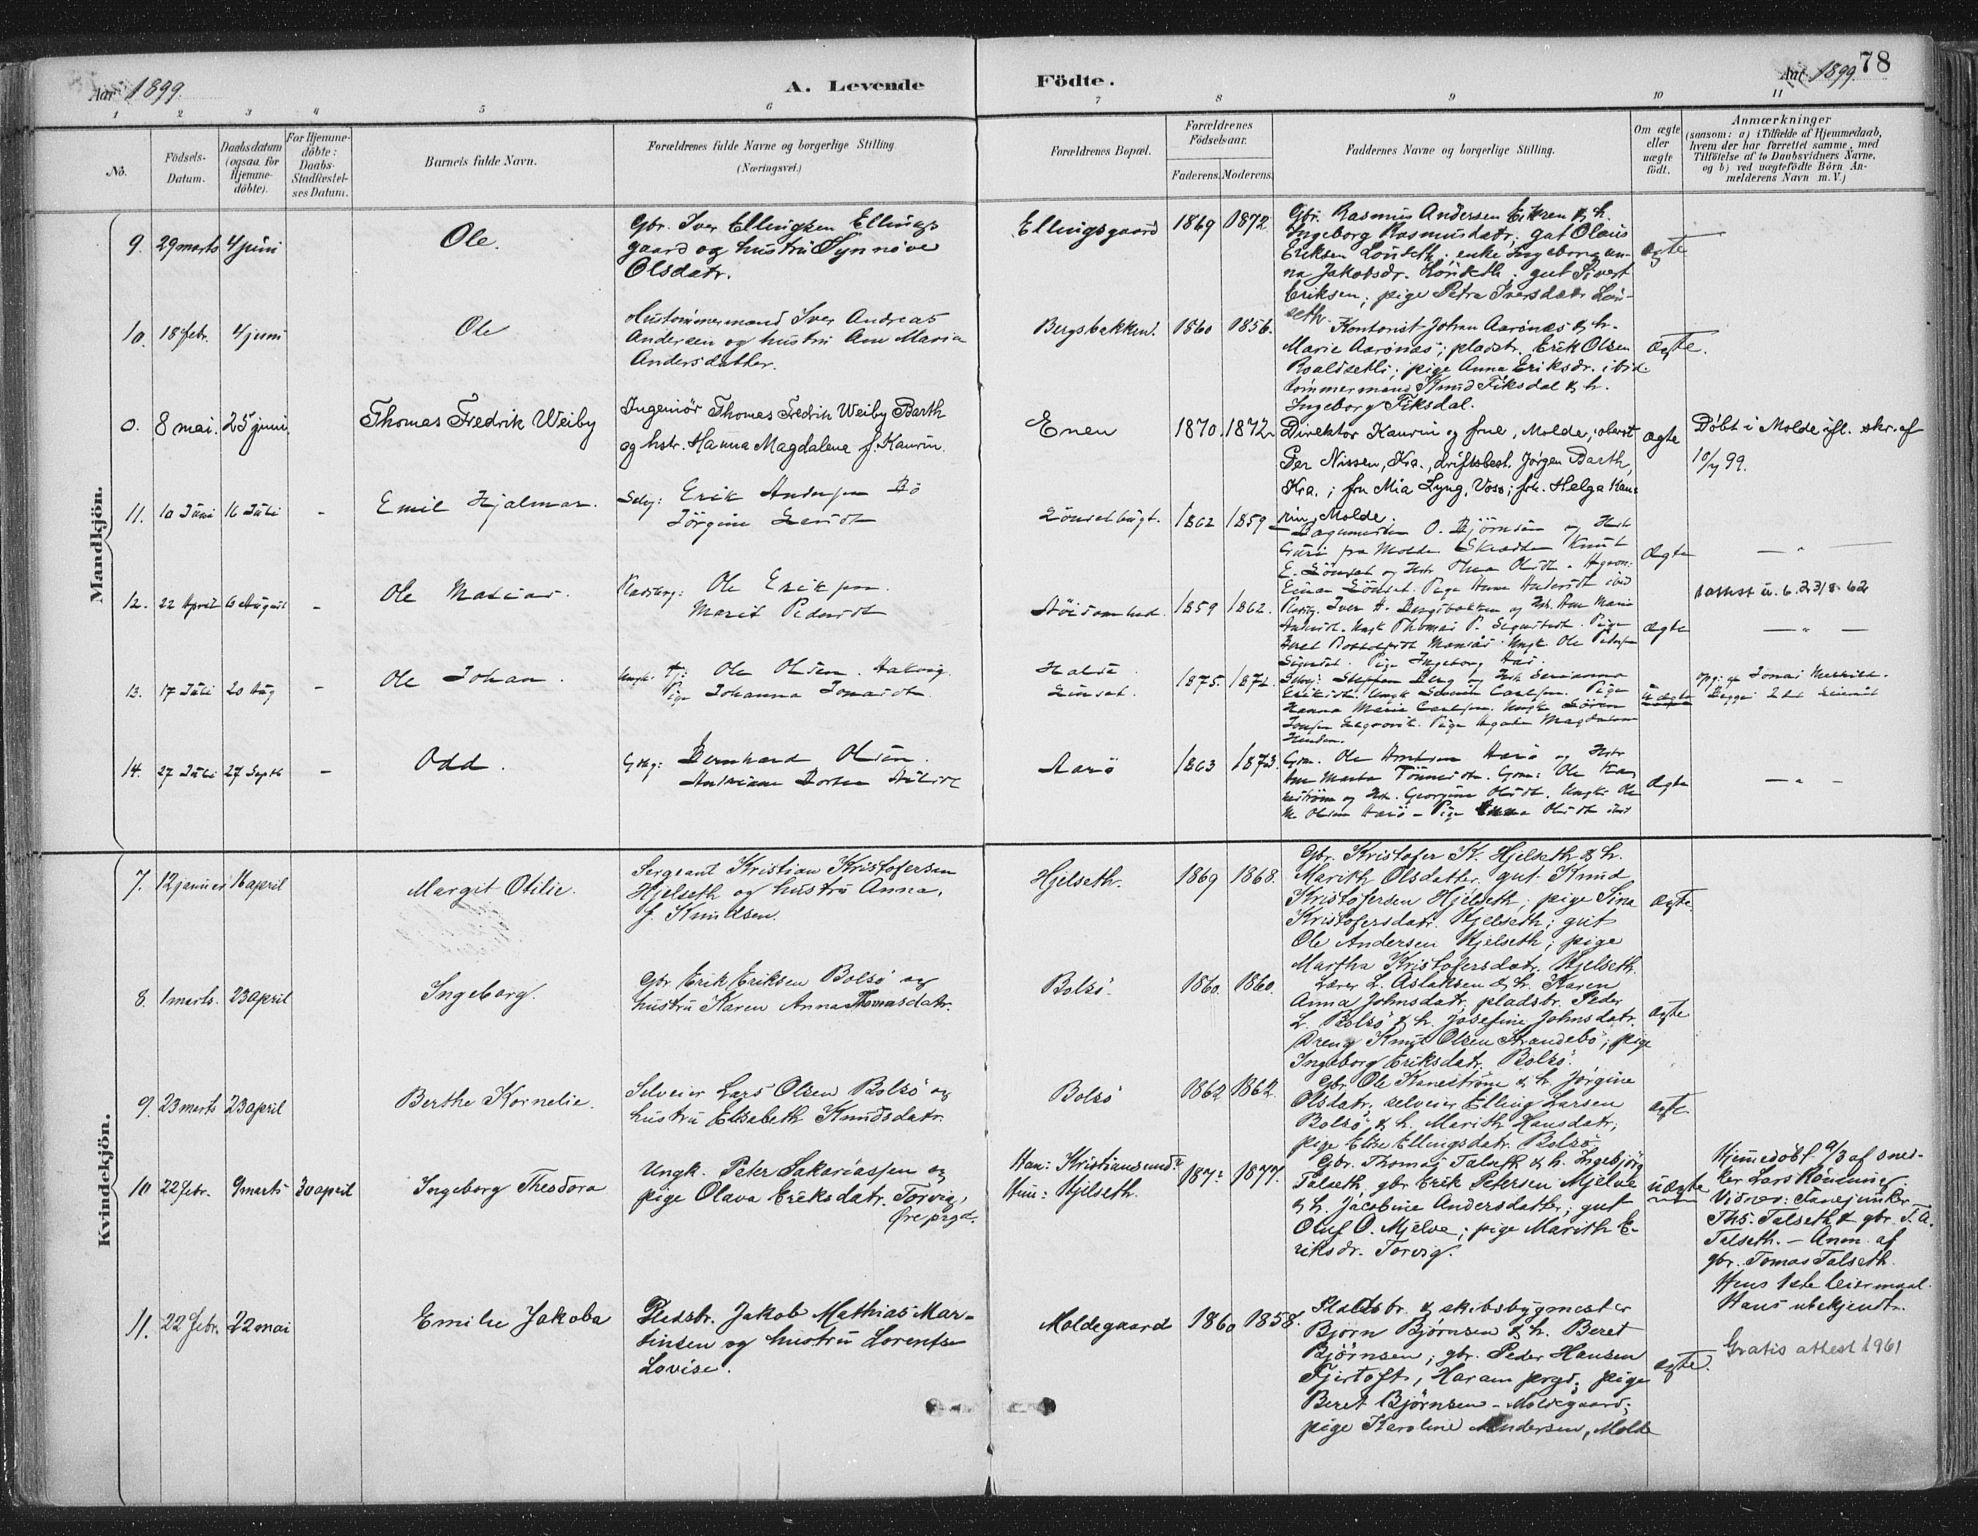 Aar 1899. A. Levende Födte. Aar 1899. 78
1 2 3 4 5 6 7 8 9 10 11
No.
Födsels-Datum.
Daabsdatum (ogsaa for Hjemme-döbte).
For Hjemme-döbte: Daabs-Stadfæstel-ses Datum.
Barnets fulde Navn.
Forældrenes fulde Navne og borgerlige Stilling
(Næringsvei.)
Forældrenes Bopæl.
Forældrenes Födselsaar.
Faderens. Moderens.
Faddernes Navne og borgerlige Stilling.
Om ægte eller uægte födt.
Anmærkninger
(saasom: a) i Tilfælde af Hjemmedaab,
hvem der har forrettet samme, med
Tilföielse af to Daabsvidners Navne,
og b) ved uægtefödte Börn An-
melderens Navn m. V.)
Mandkjön.
9. 29 marts 4 juni Ole.
Gbr. Iver Ellingsen Ellings-
gaard og hustru Synnöve
Olsdatr.
Ellingsgaard 1869 1872.
Gbr. Rasmus Andersen Eikren & h.
Ingeborg Rasmusdatr. gut Olaus
Eriksen Lönseth; enke Ingeborg an-
na Jakobsdr. Lönseth; gut Sivert
Eriksen; pige Petra Iversdatr Lön-
seth.
ægte
10. 18 febr. 4 juni Ole
Hustömmermand Iver Andreas
Andersen og hustru Ane Maria
Andersdatter.
Bergsbakken. 1860 1856.
Kontorist Johan Aarönæs & h.
Marie Aarönæs; pladsbr. Erik Olsen
Roaldsetli; pige Anna Eriksdr. ibid.
tömmermand Knud Fiksdal & h.
Ingeborg Fiksdal.
ægte.
0. 8 mai. 25 juni. Thomas Fredrik Weiby
Ingeniör Thomas Fredrik Weiby Barth
og hstr. Hanna Magdalene f. Kaurin.
Enen 1870. 1872.
Direktor Kaurin og frue, Molde; oberst
Per Nissen, Kra., driftsbest. Jörgen Barth,
Kra.; fru Mia Lyng, Voss; frk. Helga Kau-
rin, Molde.
ægte
Döbt i Molde ifl. skr. af
10/7 99.
11. 10 Juni 16 Juli - Emil Hjalmar.
Selvj: Erik Andersen Bö
Jörgine
Lönsetbugt. 1862 1859
O. Björnsen og Hstr
Guri fra Molde Skrædder Knut
E. Lönset og Hstr Thea Olsdt.
Einar Lönset. Pige Anna Andersdt ibid
ægte
— " —
12. 22 April 6 August - Ole Matias.
Ole Eriksen
Marit Pedersdt
1859 1862.
Iver A. Bergsbakken og Hstr. Ane Maria
Andersdt. Ungk Thomas P. Pige
Ungk Ole Pedersen
Pige Ingeborg
ægte
attest u. 6. 23/8-62
— " —
13. 17 Juli 20 Aug - Ole Johan.
Ungk: Ole Olsen
Pige Johanna Jonasdt.
Lönset. 1875. 1872.
Selvej: Steffen Berg og Hstr
Eriksdt. Ungk Carlsen. Pige
Hanna Marie Carlsen. Ungk Sören
Pige Magdalena
uægte
Jonas
Begge 2det Leierm.
14. 27 Juli 27 Septb - Odd.
Gbrg: Bernhard Olsen.
Andrianna Dortea
Aarö 1863 1873.
Gbm. Ole Arntsen Aarö og Hstr
Ane Marta Tönnesdtr. Gbm: Ole Kan-
neström og Hstr. Georgine Olsdt. Ungk. Ole
M. Olsen Aarö - Pige Anna Olsdt ibid
ægte
— " —
Kvindekjön.
7. 12 januer 16 april Margit Otilie.
Sergeant Kristian Kristofersen
Hjelseth og hustru Anna,
f. Knudsen.
Hjelseth. 1869 1868.
Gbr. Kristofer K. Hjelseth & h.
Marith Olsdatter. gut Knud
Kristofersen Hjelseth; pige Sina
Kristofersdatr. Hjelseth; gut
Ole Andersen Hjelseth; pige
Martha Kristofersdatr. Hjelseth.
ægte.
8. 1 marts. 23 april Ingeborg.
Gbr. Erik Eriksen Bolsö og
hustru Karen Anna Thomasdatr.
Bolsö. 1860. 1860.
Lærer L. Aslaksen & h. Karen
Anna Johnsdatr. pladsbr. Peder
L. Bolsö & h. Josefine Johnsdatr.
Dreng Knut Olsen Strandebö; pige
Ingeborg Eriksdatr. Bolsö.
ægte
9. 23 marts 23 april Berthe Kornelie.
Selveier Lars Olsen Bolsö og
hustru Elisabeth Knudsdatr.
Bolsö 1862 1862.
Gbr. Ole Kaneströme & h. Jörgine
Olsdatr. selveier Elling Larsen
Bolsö & h. Marith Hansdatr,
pige Elise Ellingsdatr. Bolsö.
ægte.
10 22 febr. 9 marts 30 april Ingeborg Theodora
Ungk. Peter Sakariassen og
pige Olava Eriksdatr. Torvig,
Öre prgd.
Han: Kristiansund
Hun: Hjelseth. 187? 1877.
Gbr. Thomas Talseth & h. Ingebjörg
Talseth, gbr Erik Petersen Mjelve
& h. Jacobine Andersdatter; gut
Oluf O. Mjelve; pige Marith E-
riksdr. Torvig.
uægte
Hjemmedöbt 9/3 af sned-
ker Lars Rönning.
Vidner: Fanejunker
Ths. Talseth & gbr. T. A.
Talseth. — Anm. af
gbr. Tomas Talseth.
Huns 1ste leiermaal.
Hans ubekjendt.
11. 22 febr. 22 mai Emilie Jakoba
Pladsbr. Jakob Mathias Mar-
tinsen og hustru Lorentse
Lovise.
Moldegaard 1860 1858.
Pladsbr. & skibsbygmester
Björn Björnsen & h. Beret
Björnsen; gbr. Peder Hansen
Fjertoft, Haram prgd; pige
Beret Björnsen - Moldegaard;
pige Karoline Andersen, Molde
ægte.
Gratis attest 1961